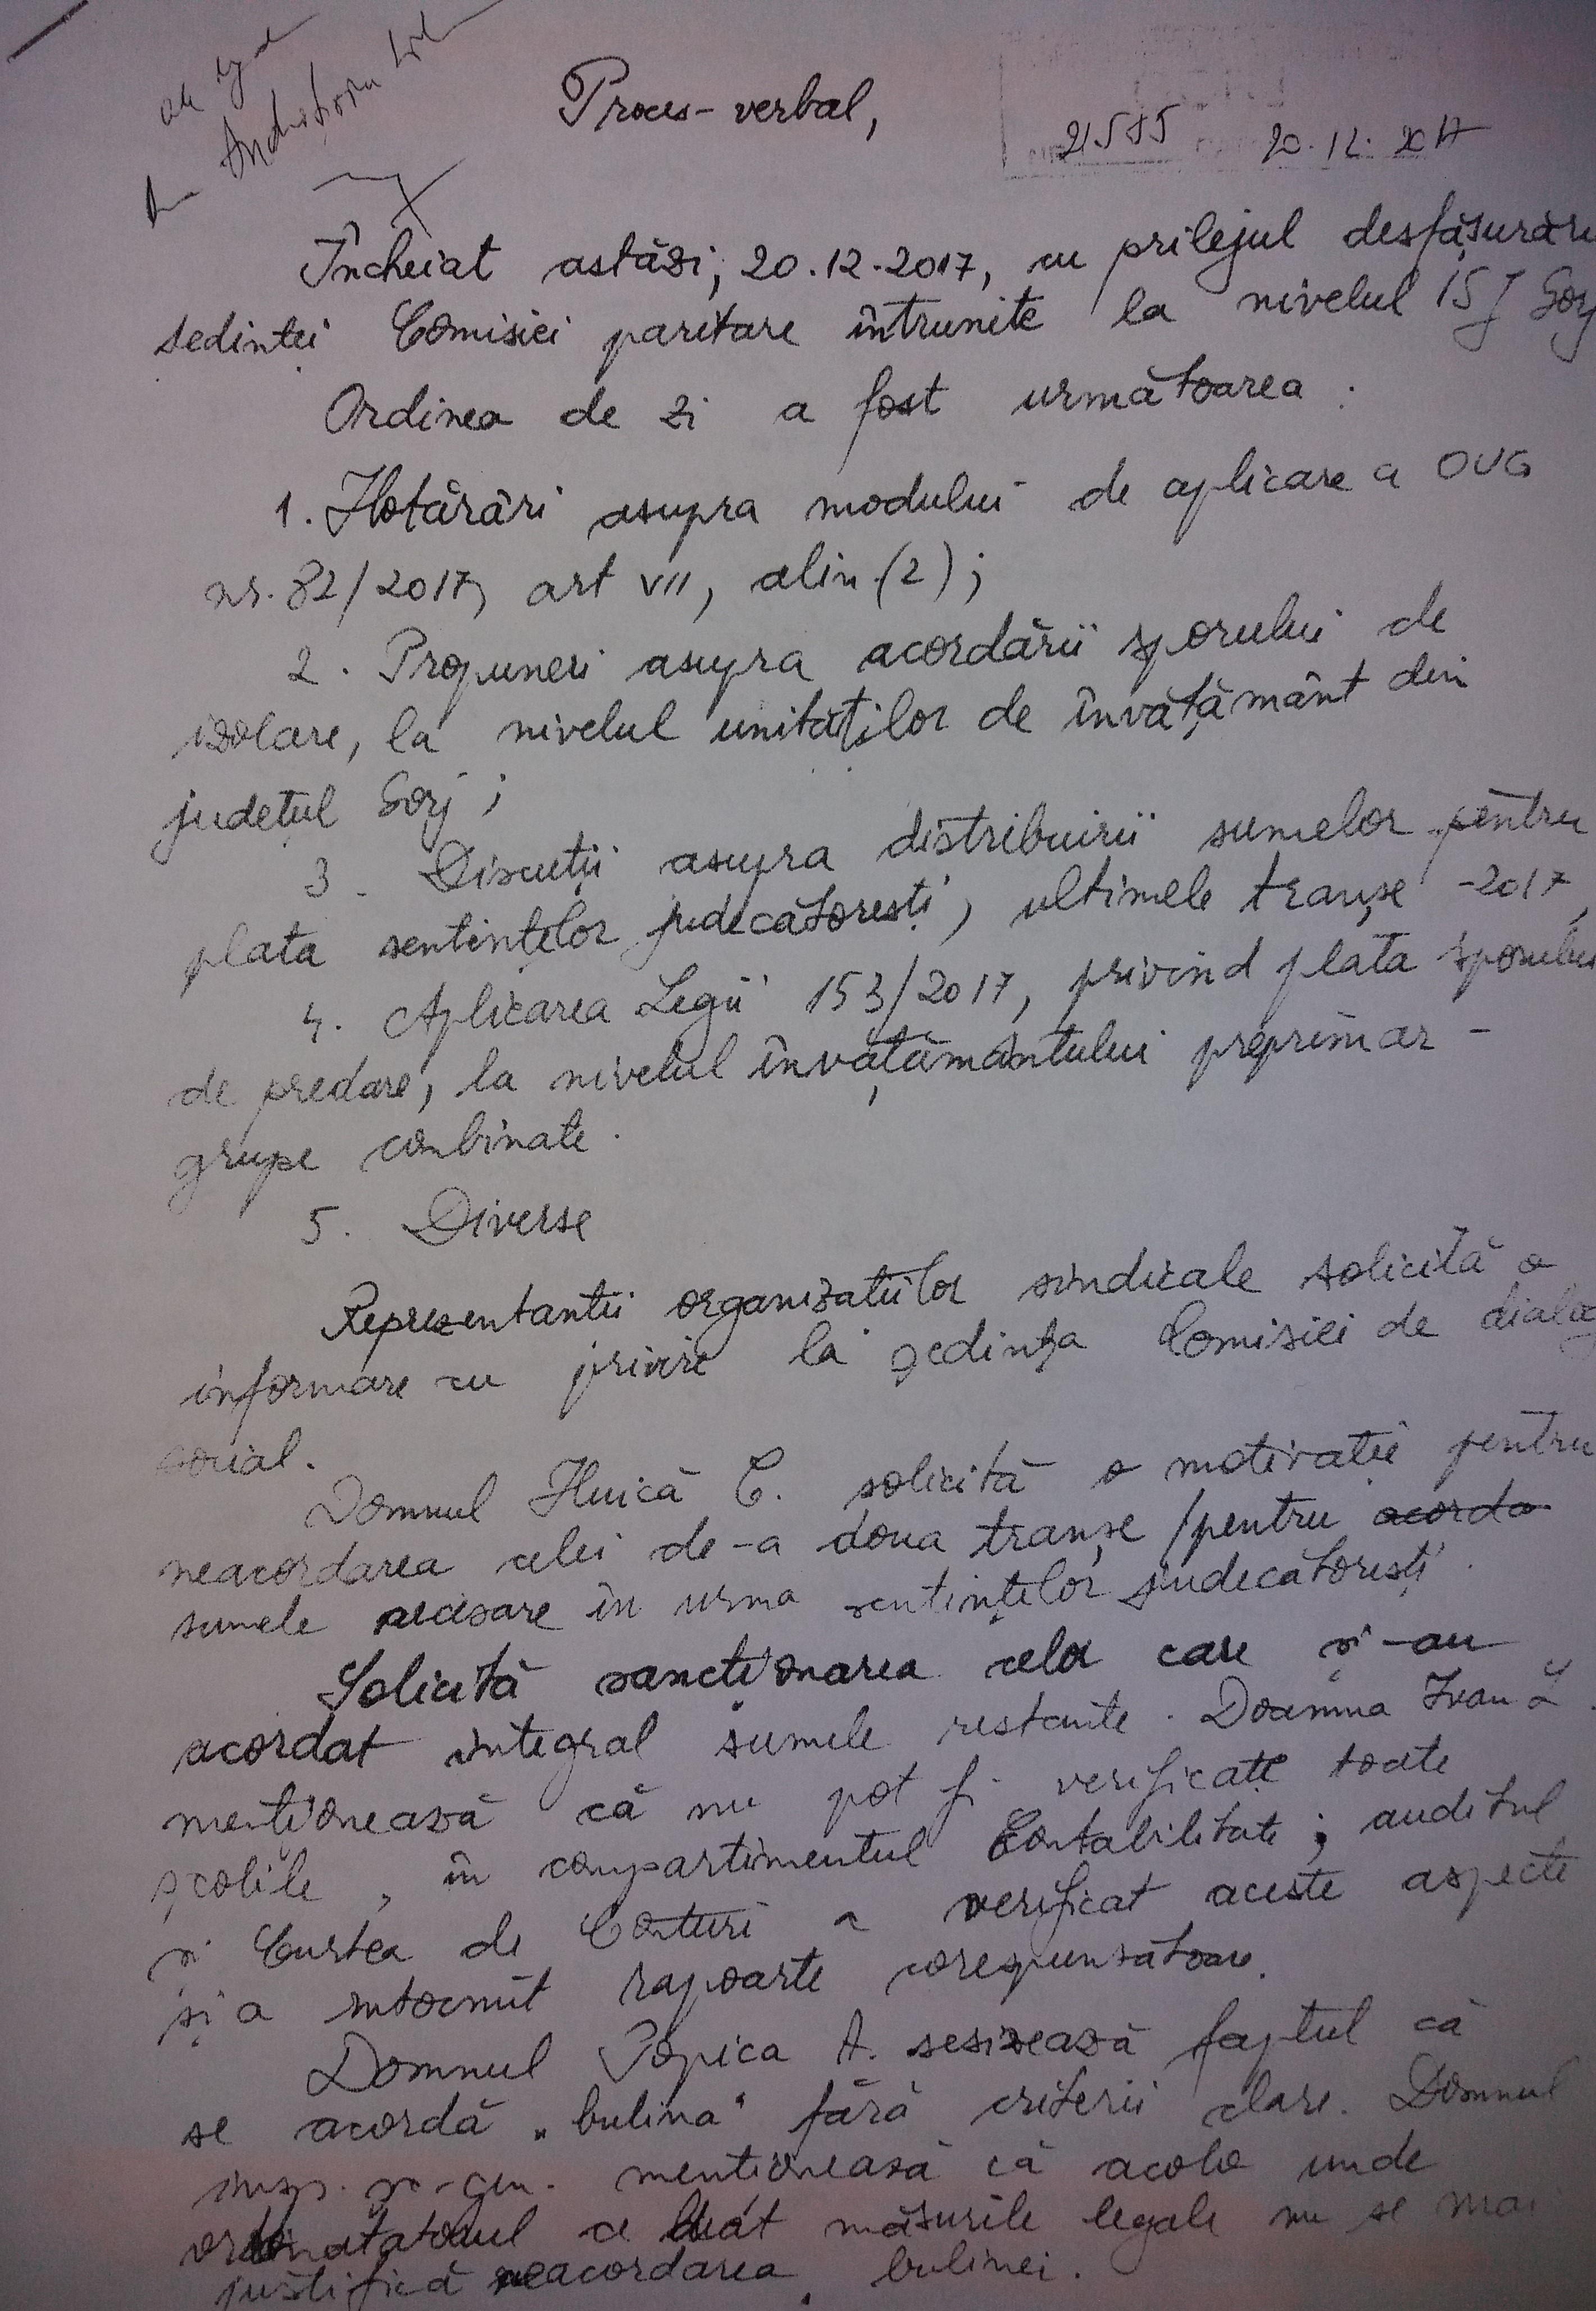 Proces-verbal,
21585 20.12.2017
Încheiat astăzi, 20.12.2017, cu prilejul desfășurări
sedinței Comisiei paritare întrunite la nivelul ISJ Gorj
Ordinea de zi a fost următoarea :
1. Hotărâri asupra modului de aplicare a OUG
nr. 82/2017, art VII, alin.(2);
2. Propuneri asupra acordării sporului de
izolare, la nivelul unităților de învățământ din
județul Gorj ;
3. Discuții asupra distribuirii sumelor pentru
plata sentințelor judecătorești, ultimele tranșe -2017,
4. Aplicarea Legii 153/2017, privind plata sporului
de predare, la nivelul învățământului preprimar -
grupe combinate.
5. Diverse
Reprezentantii organizatiilor sindicale solicită o
informare cu privire la ședința Comisiei de dialog
social.
Domnul Huică C. solicită o motivație pentru
neacordarea celei de-a doua tranșe /pentru acorda
sumele necesare în urma sentințelor judecătorești.
Solicită sancționarea celor care și-au
acordat integral sumele restante. Doamna Ivan L.
mentionează că nu pot fi verificate toate
școlile, în compartimentul Contabilitate ; auditul
și Curtea de Conturi a verificat aceste aspecte
și a întocmit rapoarte corespunzătoare.
Domnul Popica A. sesizează faptul că
se acordă „bulina" fără criterii clare. Domnul
insp. șc. gen. mentionează că acolo unde
ordonatatorul a luat măsurile legale nu se mai
justifică neacordarea bulinei.